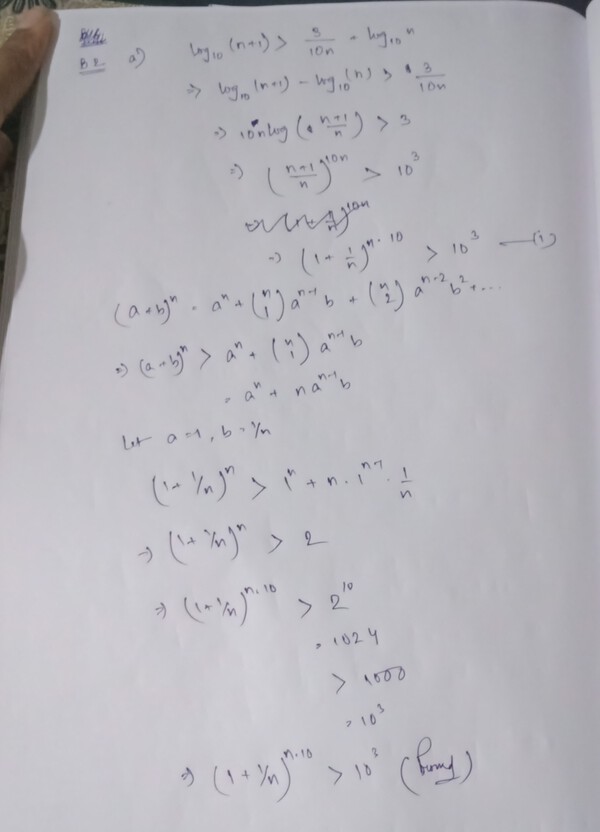 B E. a) log₁₀ (n+1) > 3/10n + log₁₀ n
⇒ log₁₀ (n+1) - log₁₀ (n) > 3/10n
⇒ 10n log ( (n+1)/n ) > 3
⇒ ( (n+1)/n )^10n > 10^3
⇒ (1 + 1/n)^n·10 > 10^3 —(i)
(a+b)^n = a^n + (n 1) a^n-1 b + (n 2) a^n-2 b^2 + ...
⇒ (a+b)^n > a^n + (n 1) a^n-1 b
= a^n + n a^n-1 b
Let a=1, b = 1/n
(1 + 1/n)^n > 1^n + n · 1^n-1 · 1/n
⇒ (1 + 1/n)^n > 2
⇒ (1 + 1/n)^n·10 > 2^10
= 1024
> 1000
= 10^3
⇒ (1 + 1/n)^n·10 > 10^3 (Proved)